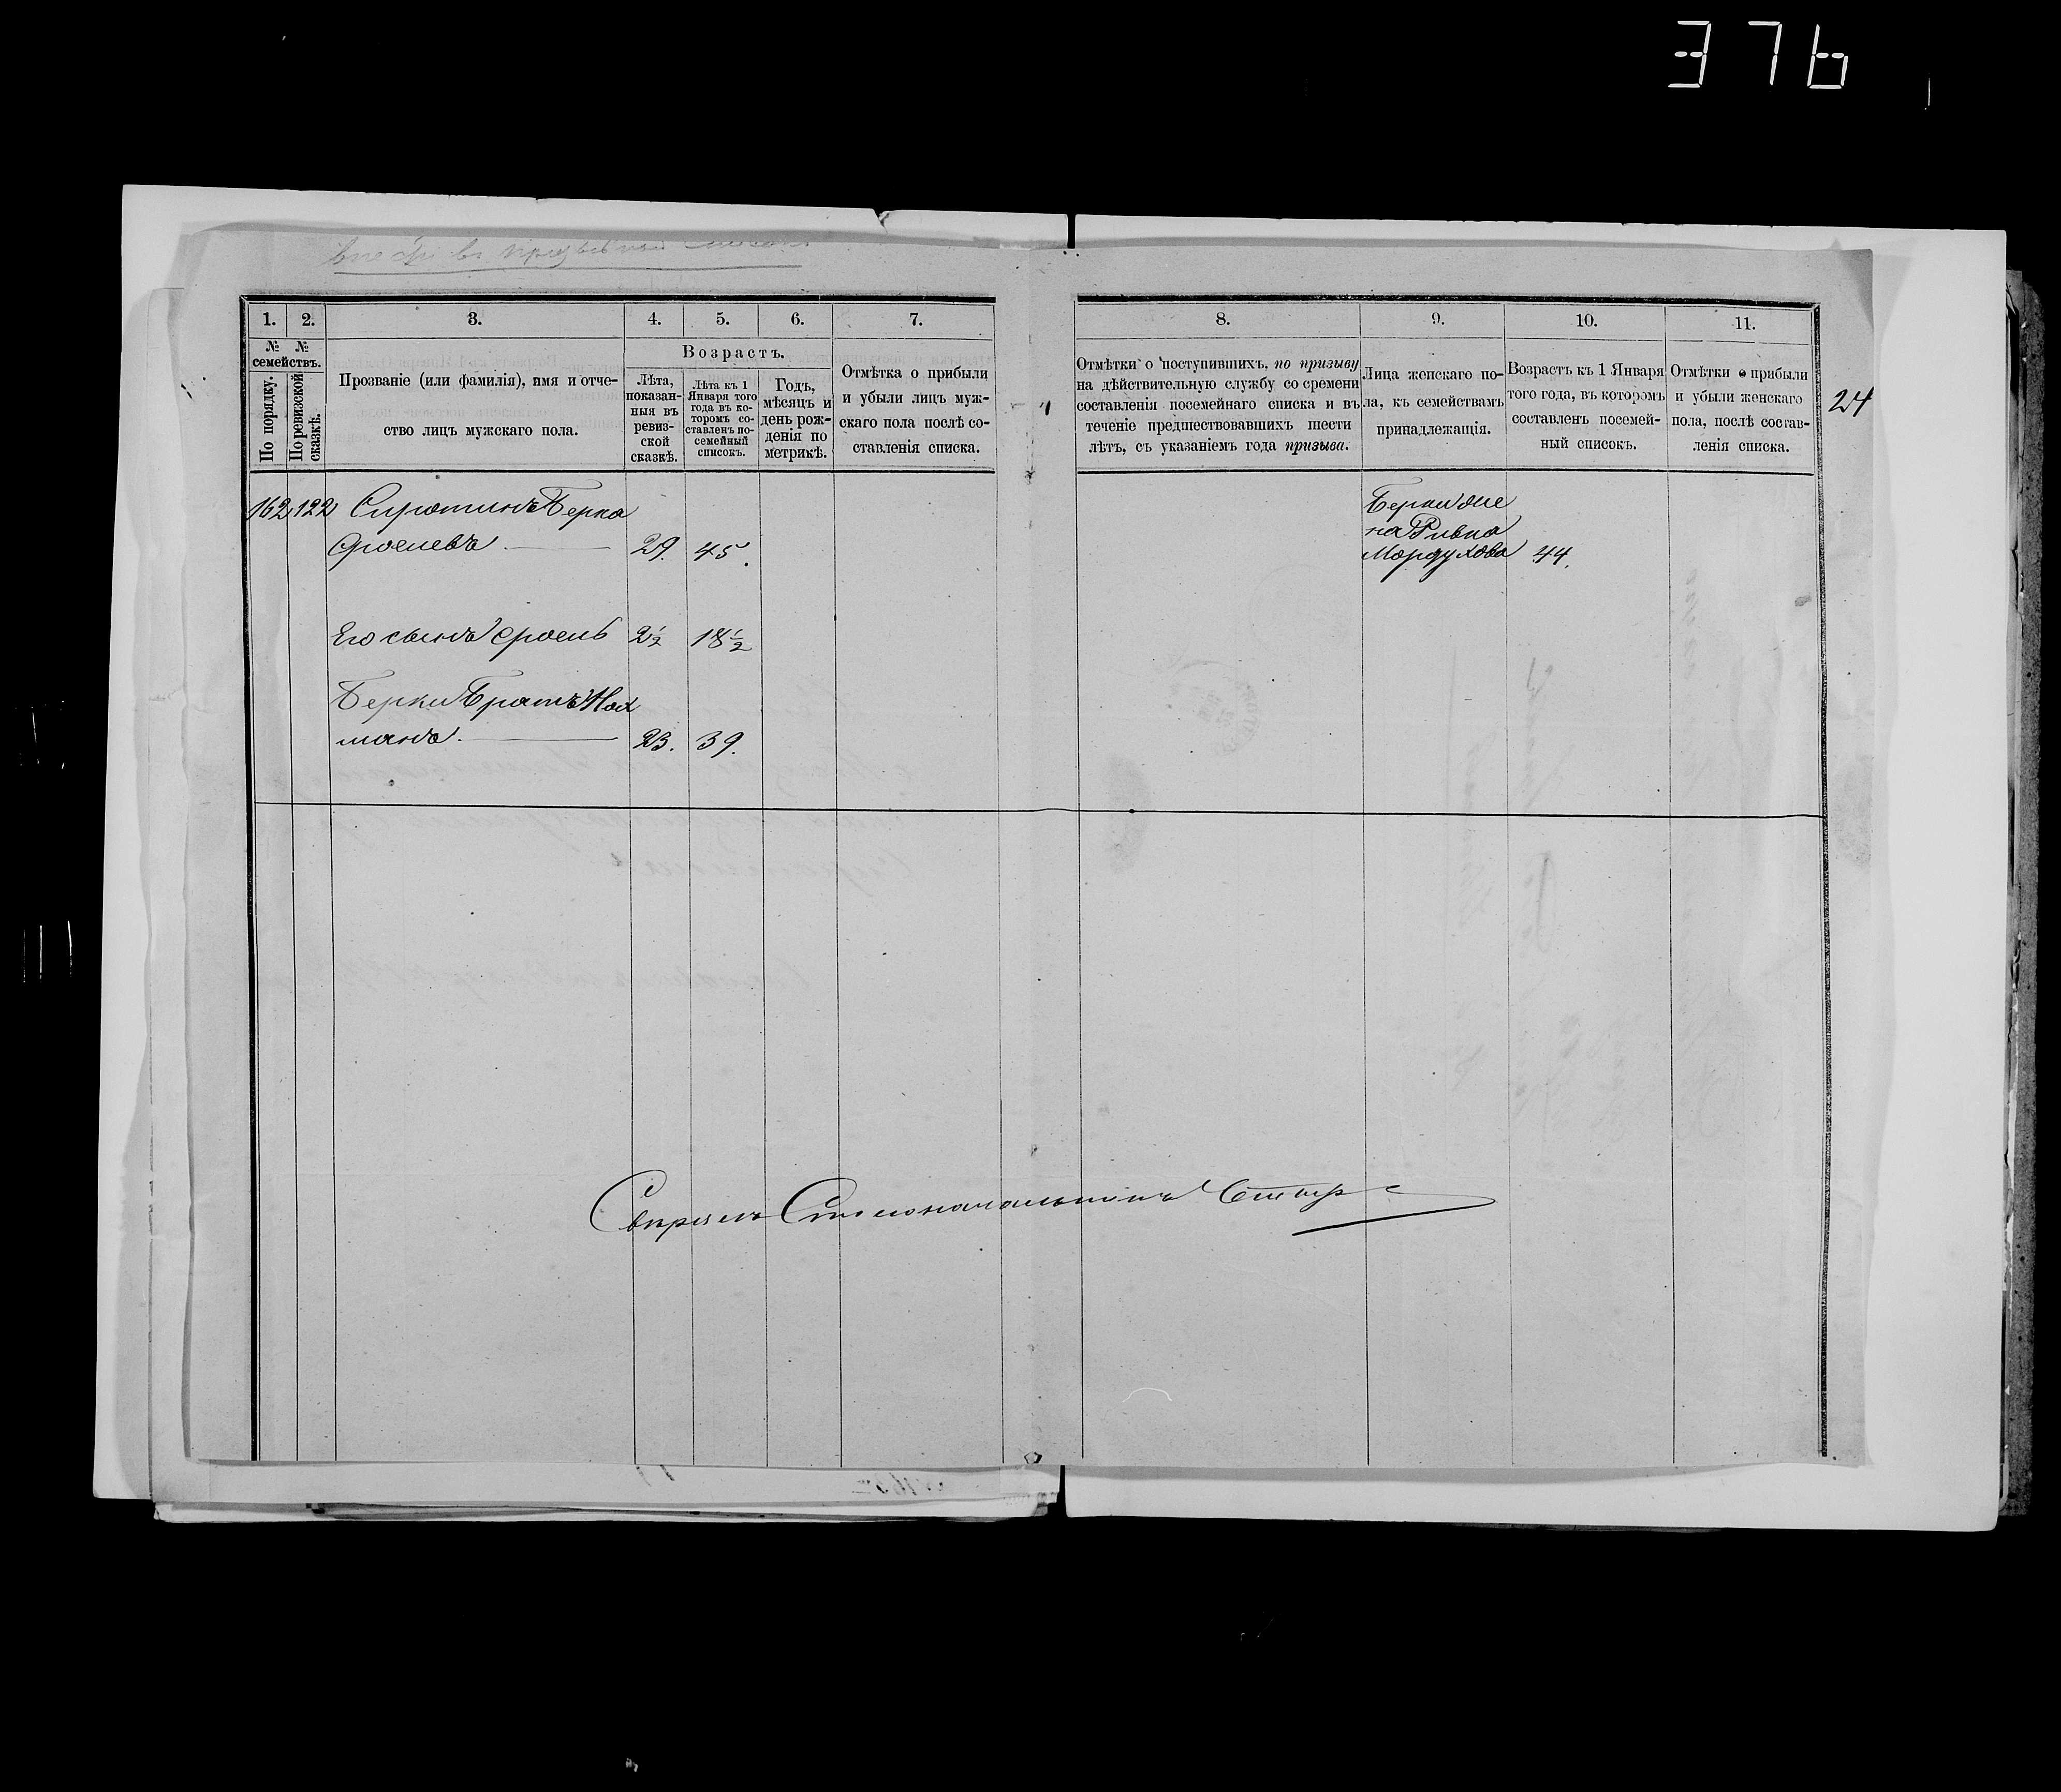 376
внести въ призывной списокъ
24
1. 2. 3. 4. 5. 6. 7.
№ № семействъ.
По порядку.
По ревизской сказкѣ.
Прозваніе (или фамилія), имя и отчество лицъ мужскаго пола.
Возрастъ.
Лѣта, показанныя въ ревизской сказкѣ.
Лѣта къ 1 Января того года въ которомъ составленъ посемейный списокъ.
Годъ, мѣсяцъ и день рожденія по метрикѣ.
Отмѣтка о прибыли и убыли лицъ мужскаго пола послѣ составленія списка.
8. 9. 10. 11.
Отмѣтки о поступившихъ, по призыву на дѣйствительную службу со времени составленія посемейнаго списка и въ теченіе предшествовавшихъ шести лѣтъ, съ указаніемъ года призыва.
Лица женскаго пола, къ семействамъ принадлежащія.
Возрастъ къ 1 Января того года, въ которомъ составленъ посемейный списокъ.
Отмѣтки о прибыли и убыли женскаго пола, послѣ составленія списка.
162 122 Сиротинъ Берка
Сроелевъ 29. 45.
Его сынъ Сроель 2½ 18½
Берки Братъ Нох
манъ. 23. 39.
Берки же
на Ривка
Мордухова 44.
Свѣрялъ Столоначальникъ